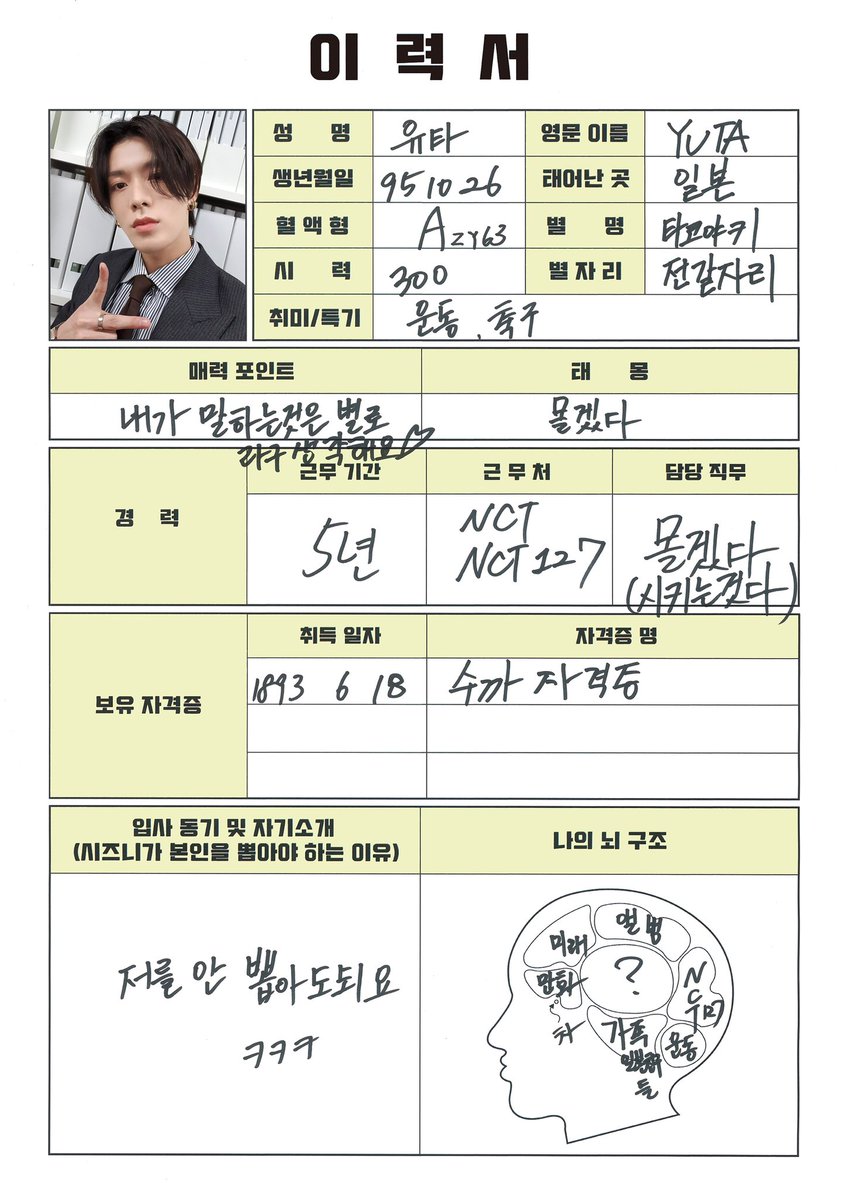 이력서
성 명 유타 영문 이름 YUTA
생년월일 951026 태어난 곳 일본
혈액형 AZY63 별 명 타코야키
시 력 300 별자리 전갈자리
취미/특기 운동, 축구
매력 포인트 태 몽
내가 말하는것은 별로 몰겠다
라구 생각해요
경 력 근무 기간 근무처 담당 직무
5년 NCT 몰겠다
NCT 127 (시키는것다)
보유 자격증 취득 일자 자격증 명
1893 6 18 수까 자격증
입사 동기 및 자기소개
(시즈니가 본인을 뽑아야 하는 이유)
저를 안 뽑아도되요
ㅋㅋㅋ
나의 뇌 구조
앨범
미래
만화
?
NCT127
차
가족
운동
들